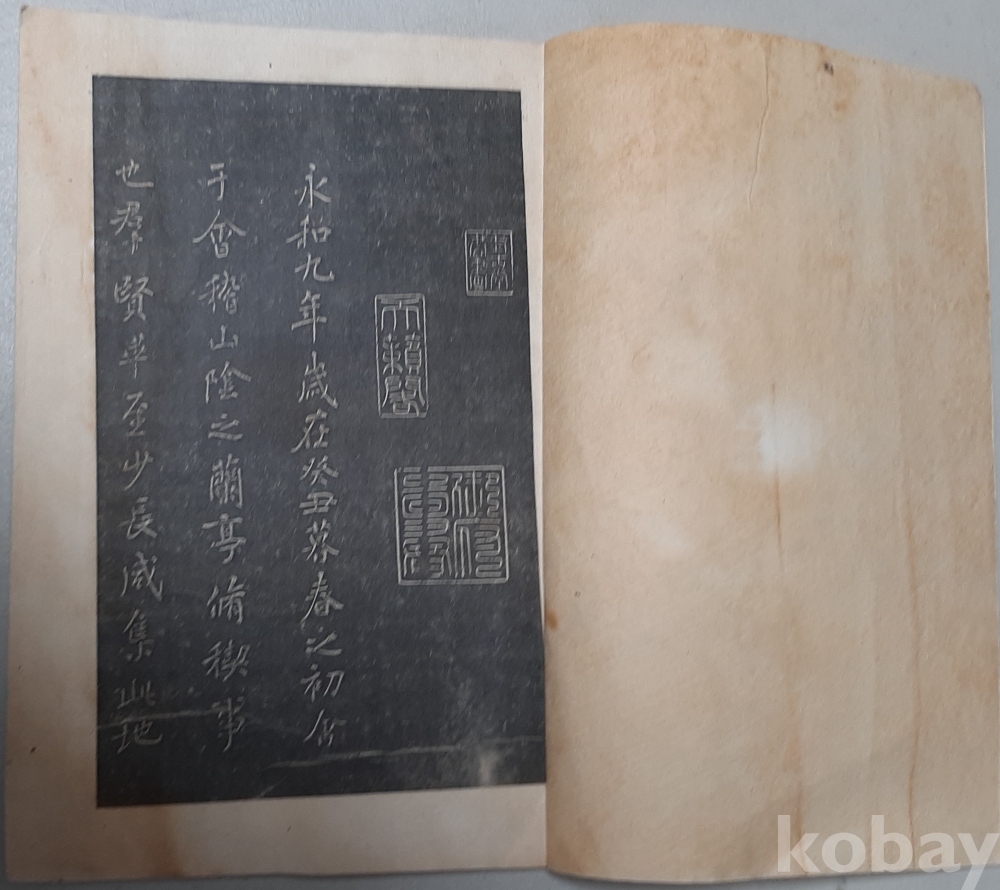 永和九年歲在癸丑暮春之初會
于會稽山陰之蘭亭脩稧事
也羣賢畢至少長咸集此地
天籟閣
kobay